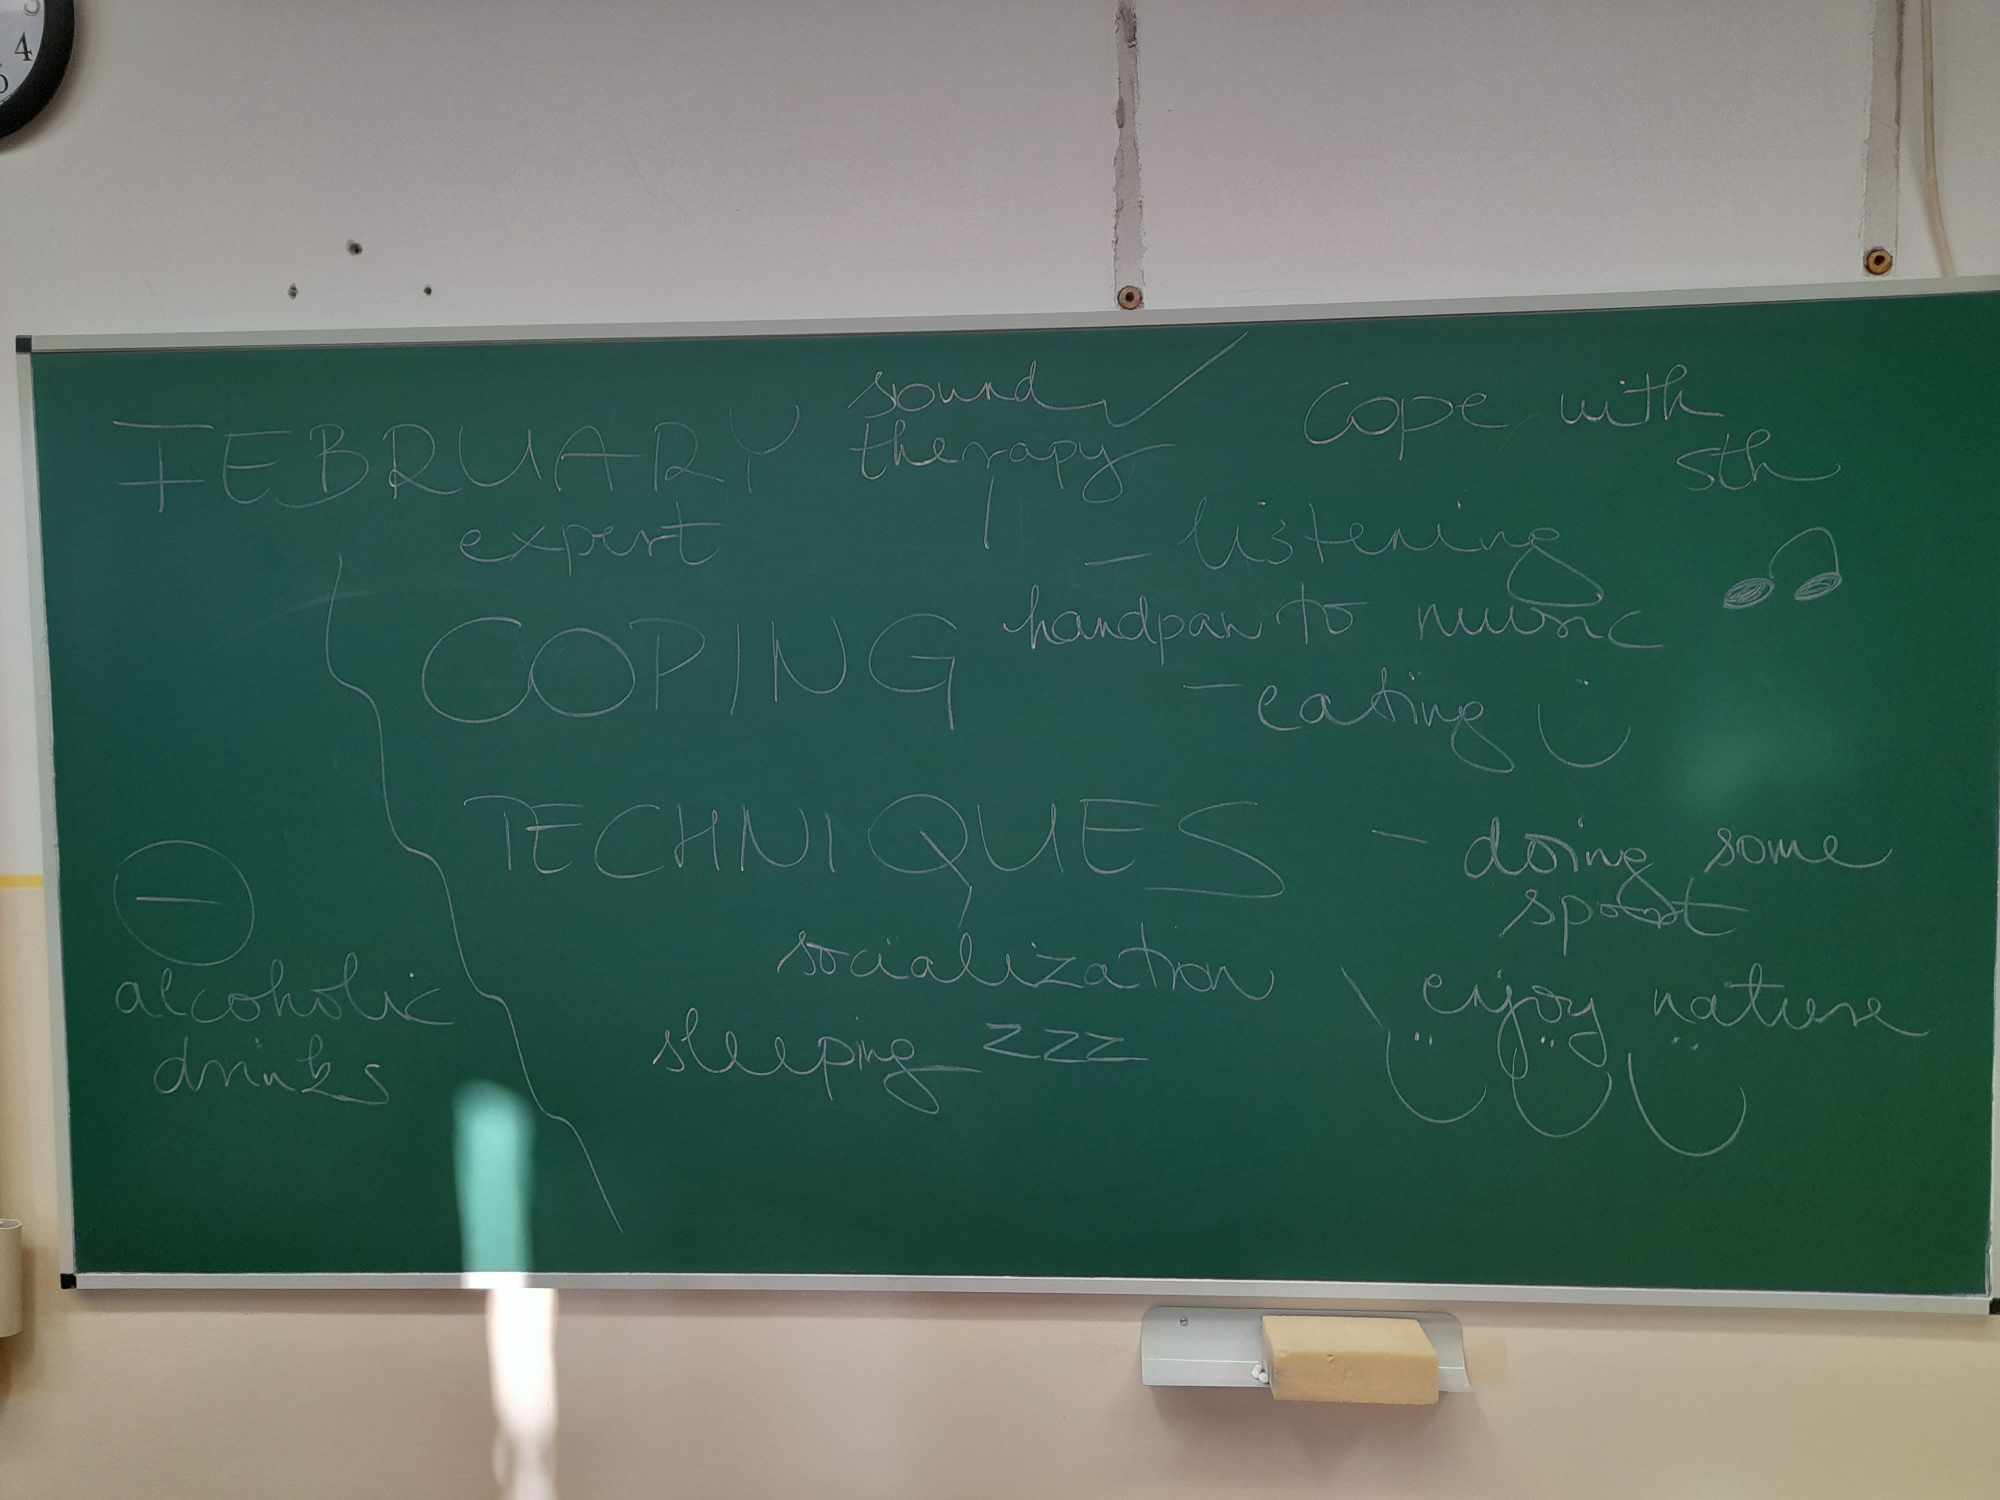 FEBRUARY
expert
sound
therapy
handpan
cope with
sth
- listening
to music
- eating
COPING
TECHNIQUES
- doing some
sport
enjoy nature
socialization
sleeping zzz
alcoholic
drinks
3
4
5